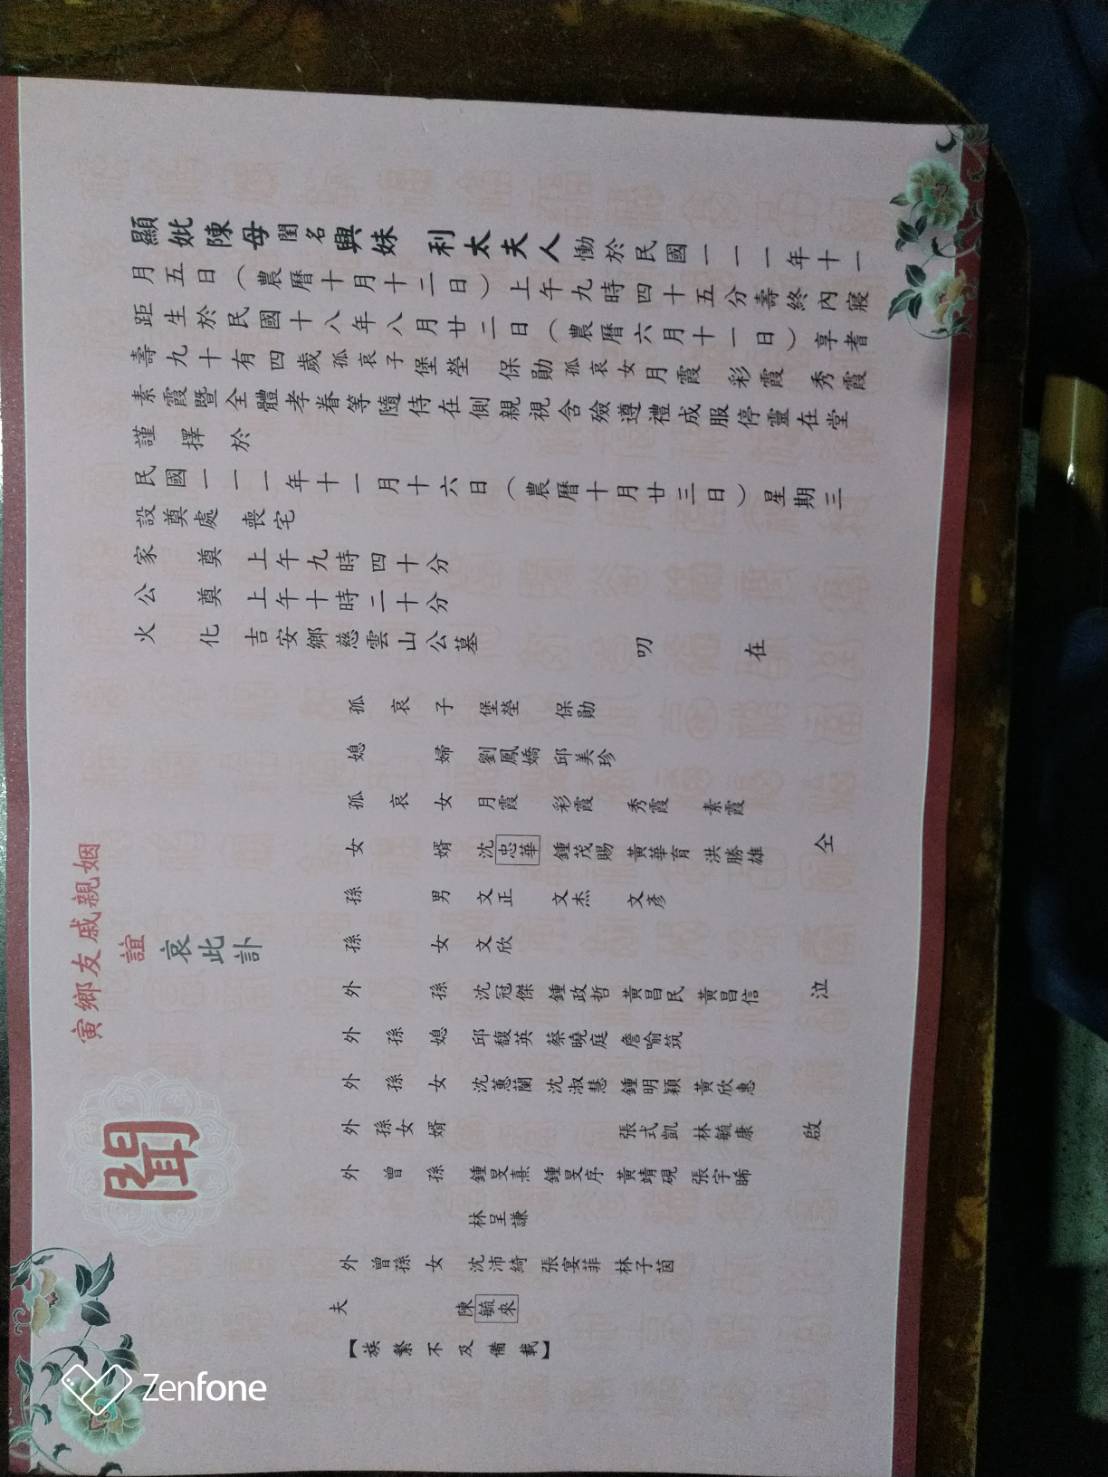 顯妣陳母閨名興妹 利太夫人慟於民國一一一年十一
月五日（農曆十月十二日）上午九時四十五分壽終內寢
距生於民國十八年八月廿二日（農曆六月十一日）享耆
壽九十有四歲孤哀子堡塋 保勛孤哀女月霞 彩霞 秀霞
素霞暨全體孝眷等隨侍在側親視含殮遵禮成服停靈在堂
謹擇於
民國一一一年十一月十六日（農曆十月廿三日）星期三
設奠處 喪宅
家奠 上午九時四十分
公奠 上午十時二十分
火化 吉安鄉慈雲山公墓
叨在
孤哀子 堡塋 保勛
媳婦 劉鳳嬌 邱美珍
孤哀女 月霞 彩霞 秀霞 素霞
女婿 沈忠華 鍾茂賜 黃華育 洪勝雄 仝
孫男 文正 文杰 文彥
孫女 文欣
外孫 沈冠傑 鍾政哲 黃昌民 黃昌信 泣
外孫媳 邱馥英 蔡曉庭 詹喻筑
外孫女 沈蕙蘭 沈淑慧 鍾明穎 黃欣惠
外孫女婿 張式凱 林毓康 啟
外曾孫 鍾旻熹 鍾旻序 黃靖硯 張宇晞
林呈謙
外曾孫女 沈沛綺 張宴菲 林子茵
夫 陳毓來
【族繁不及備載】
寅鄉友戚親姻
誼
哀此訃
聞
Zenfone